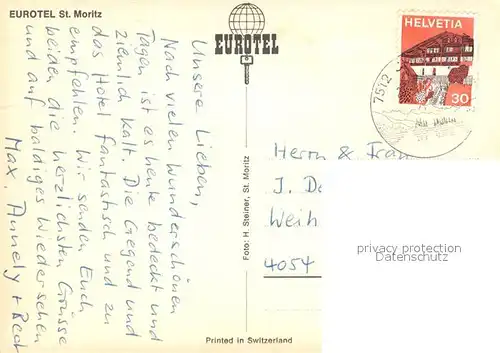 EUROTEL St. Moritz
EUROTEL
HELVETIA
30
7512
Unsere Lieben,
Nach vielen wunderschönen
Tagen ist es heute bedeckt und
ziemlich kalt. Die Gegend und
das Hotel fantastisch und zu
empfehlen. Wir senden Euch
beiden die herzlichsten Grüsse
und auf baldiges Wiedersehen
Max, Annely + Beat
Foto: H. Steiner, St. Moritz
Herrn & Frau
J. D
Weih
4054
privacy protection
Datenschutz
Printed in Switzerland